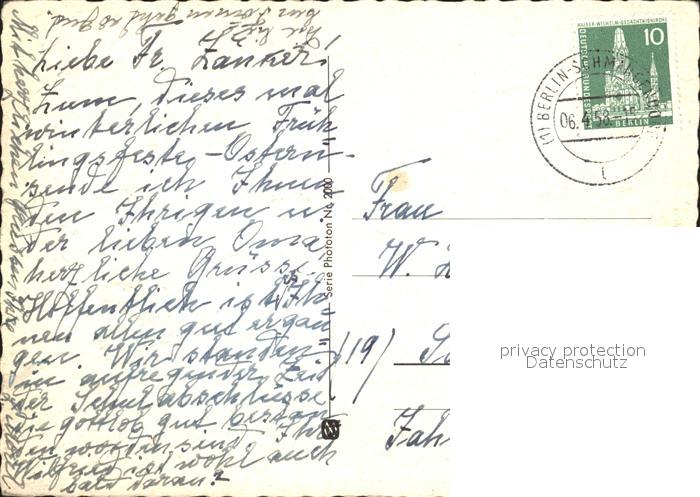 Liebe Fr. Zanker!
Zum, dieses mal
winterlichen Früh-
lingsfeste, - Ostern -
sende ich Ihnen
den Ihrigen u.
der lieben Oma,
herzliche Grüsse.
Hoffentlich ist es Ih-
nen allen gut ergan-
gen. Wir standen
in aufregender Zeit
der Schulabschlüsse.
die gottlob gut bestan-
den worden sind. Ihr
Wilfried ist wohl auch
bald daran?
Mit herzlichen
Serie Phofoton Nr. 2000
KAISER-WILHELM-GEDÄCHTNISKIRCHE
10
DEUTSCHE BUNDESPOST
BERLIN
(1) BERLIN-SCHMARGENDORF
06.4.58
t
Frau
W.
(19)
Fah
privacy protection
Datenschutz